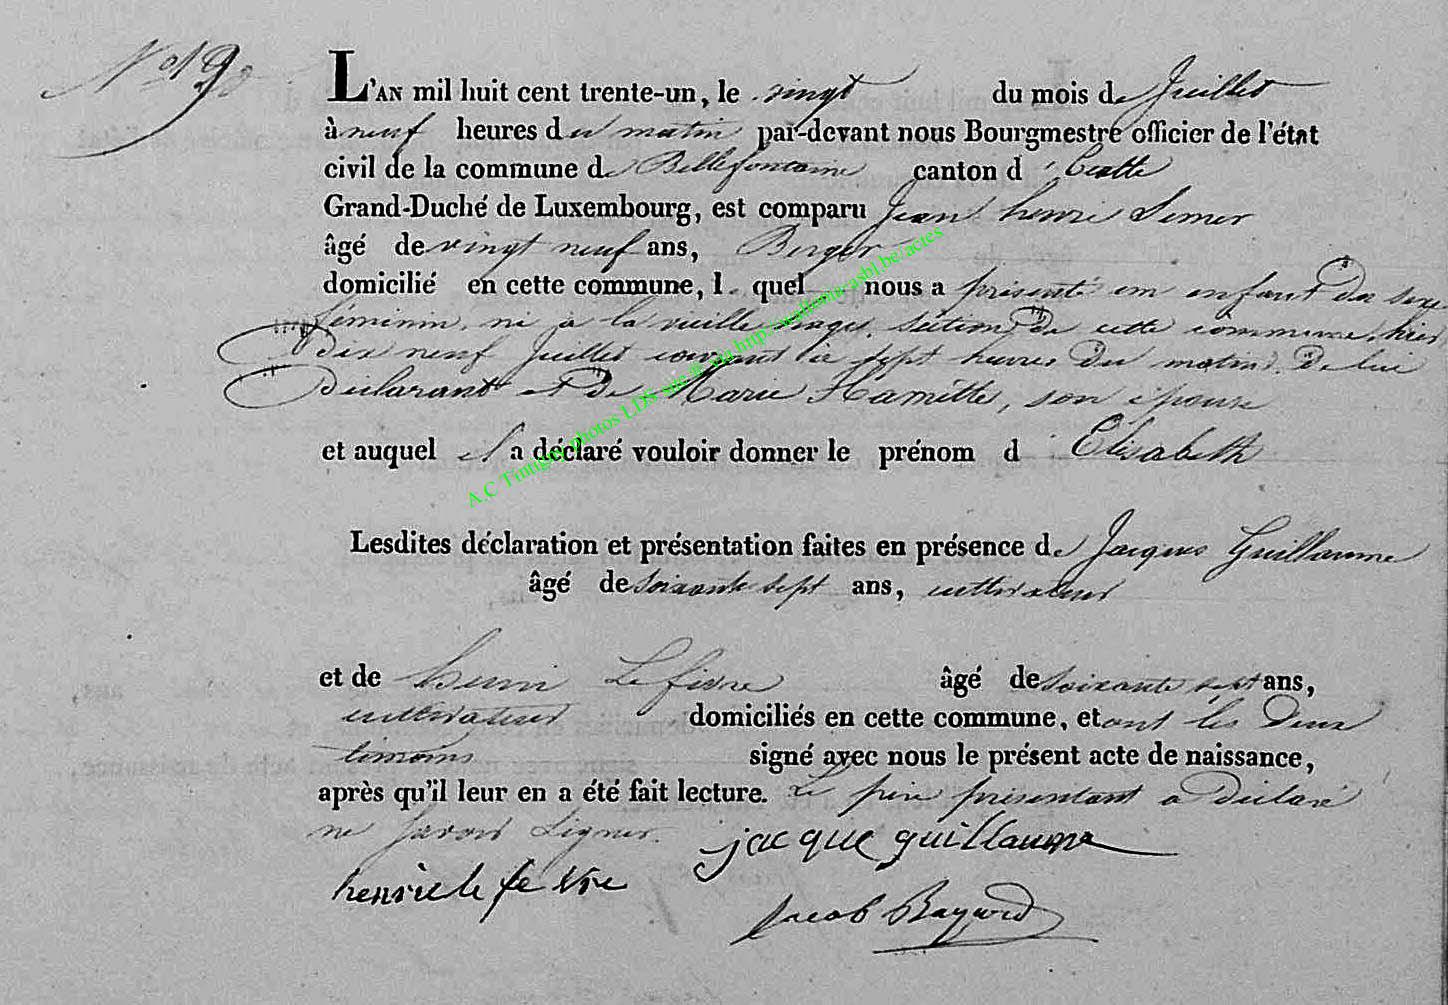 N° 19
L'AN mil huit cent trente-un, le vingt du mois de Juillet
à neuf heures du matin par-devant nous Bourgmestre officier de l'état
civil de la commune de Bellefontaine canton d'Etalle
Grand-Duché de Luxembourg, est comparu Jean henri
âgé de vingt neuf ans, Berger
domicilié en cette commune, lequel nous a présenté un enfant du sexe
féminin, né à la vieille section de cette commune, hier
Dix neuf Juillet courant à sept heures du matin, De lui
Déclarant et De Marie son épouse
et auquel il a déclaré vouloir donner le prénom d'Elisabeth
Lesdites déclaration et présentation faites en présence de Jacques Guillaume
âgé de soixante sept ans, cultivateur
et de henri Lefevre âgé de soixante sept ans,
cultivateur domiciliés en cette commune, et ont les Deux
témoins signé avec nous le présent acte de naissance,
après qu'il leur en a été fait lecture. Le père présentant a Déclaré
ne savoir signer. jacque guillaume
henri le fevre
Jacob Bayard
A.C Tintigny photos LDS site via http://wallonia-asbl.be/actes